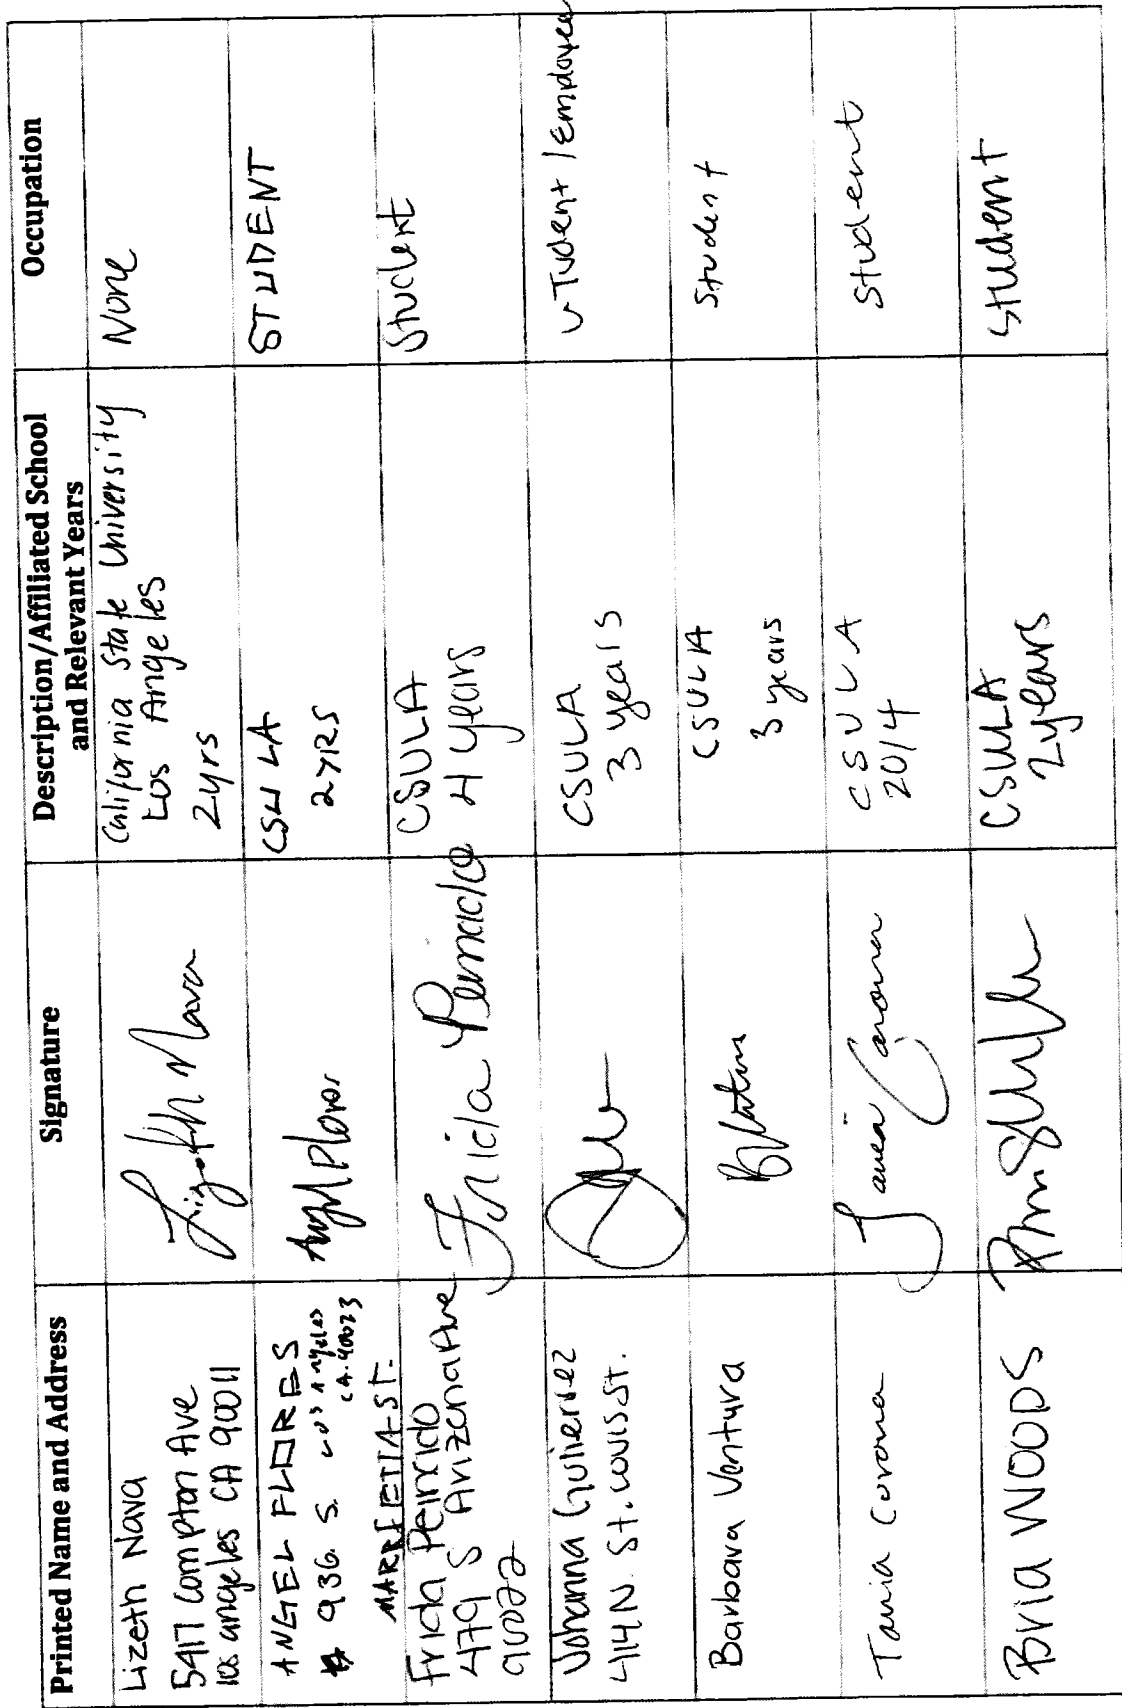 Printed Name and Address
Signature
Description/Affiliated School
and Relevant Years
Occupation
Lizeth Nava
5417 Compton Ave
los angeles CA 90011
Lizeth Nava
California State University
Los Angeles
2yrs
None
ANGEL FLORES
936. S. Los Angeles
CA. 90023
MARIETTA ST.
Angel Flores
CSULA
2YRS
STUDENT
Frida Peinado
479 S Arizona Ave
90022
Frida Peinado
CSULA
4 years
Student
Johanna Gutierrez
414 N. St. Louis St.
CSULA
3 years
Student / Employee
Barbara Ventura
CSULA
3 years
Student
Tania Corona
Tania Corona
CSULA
2014
Student
Bria WOODS
CSULA
2years
Student